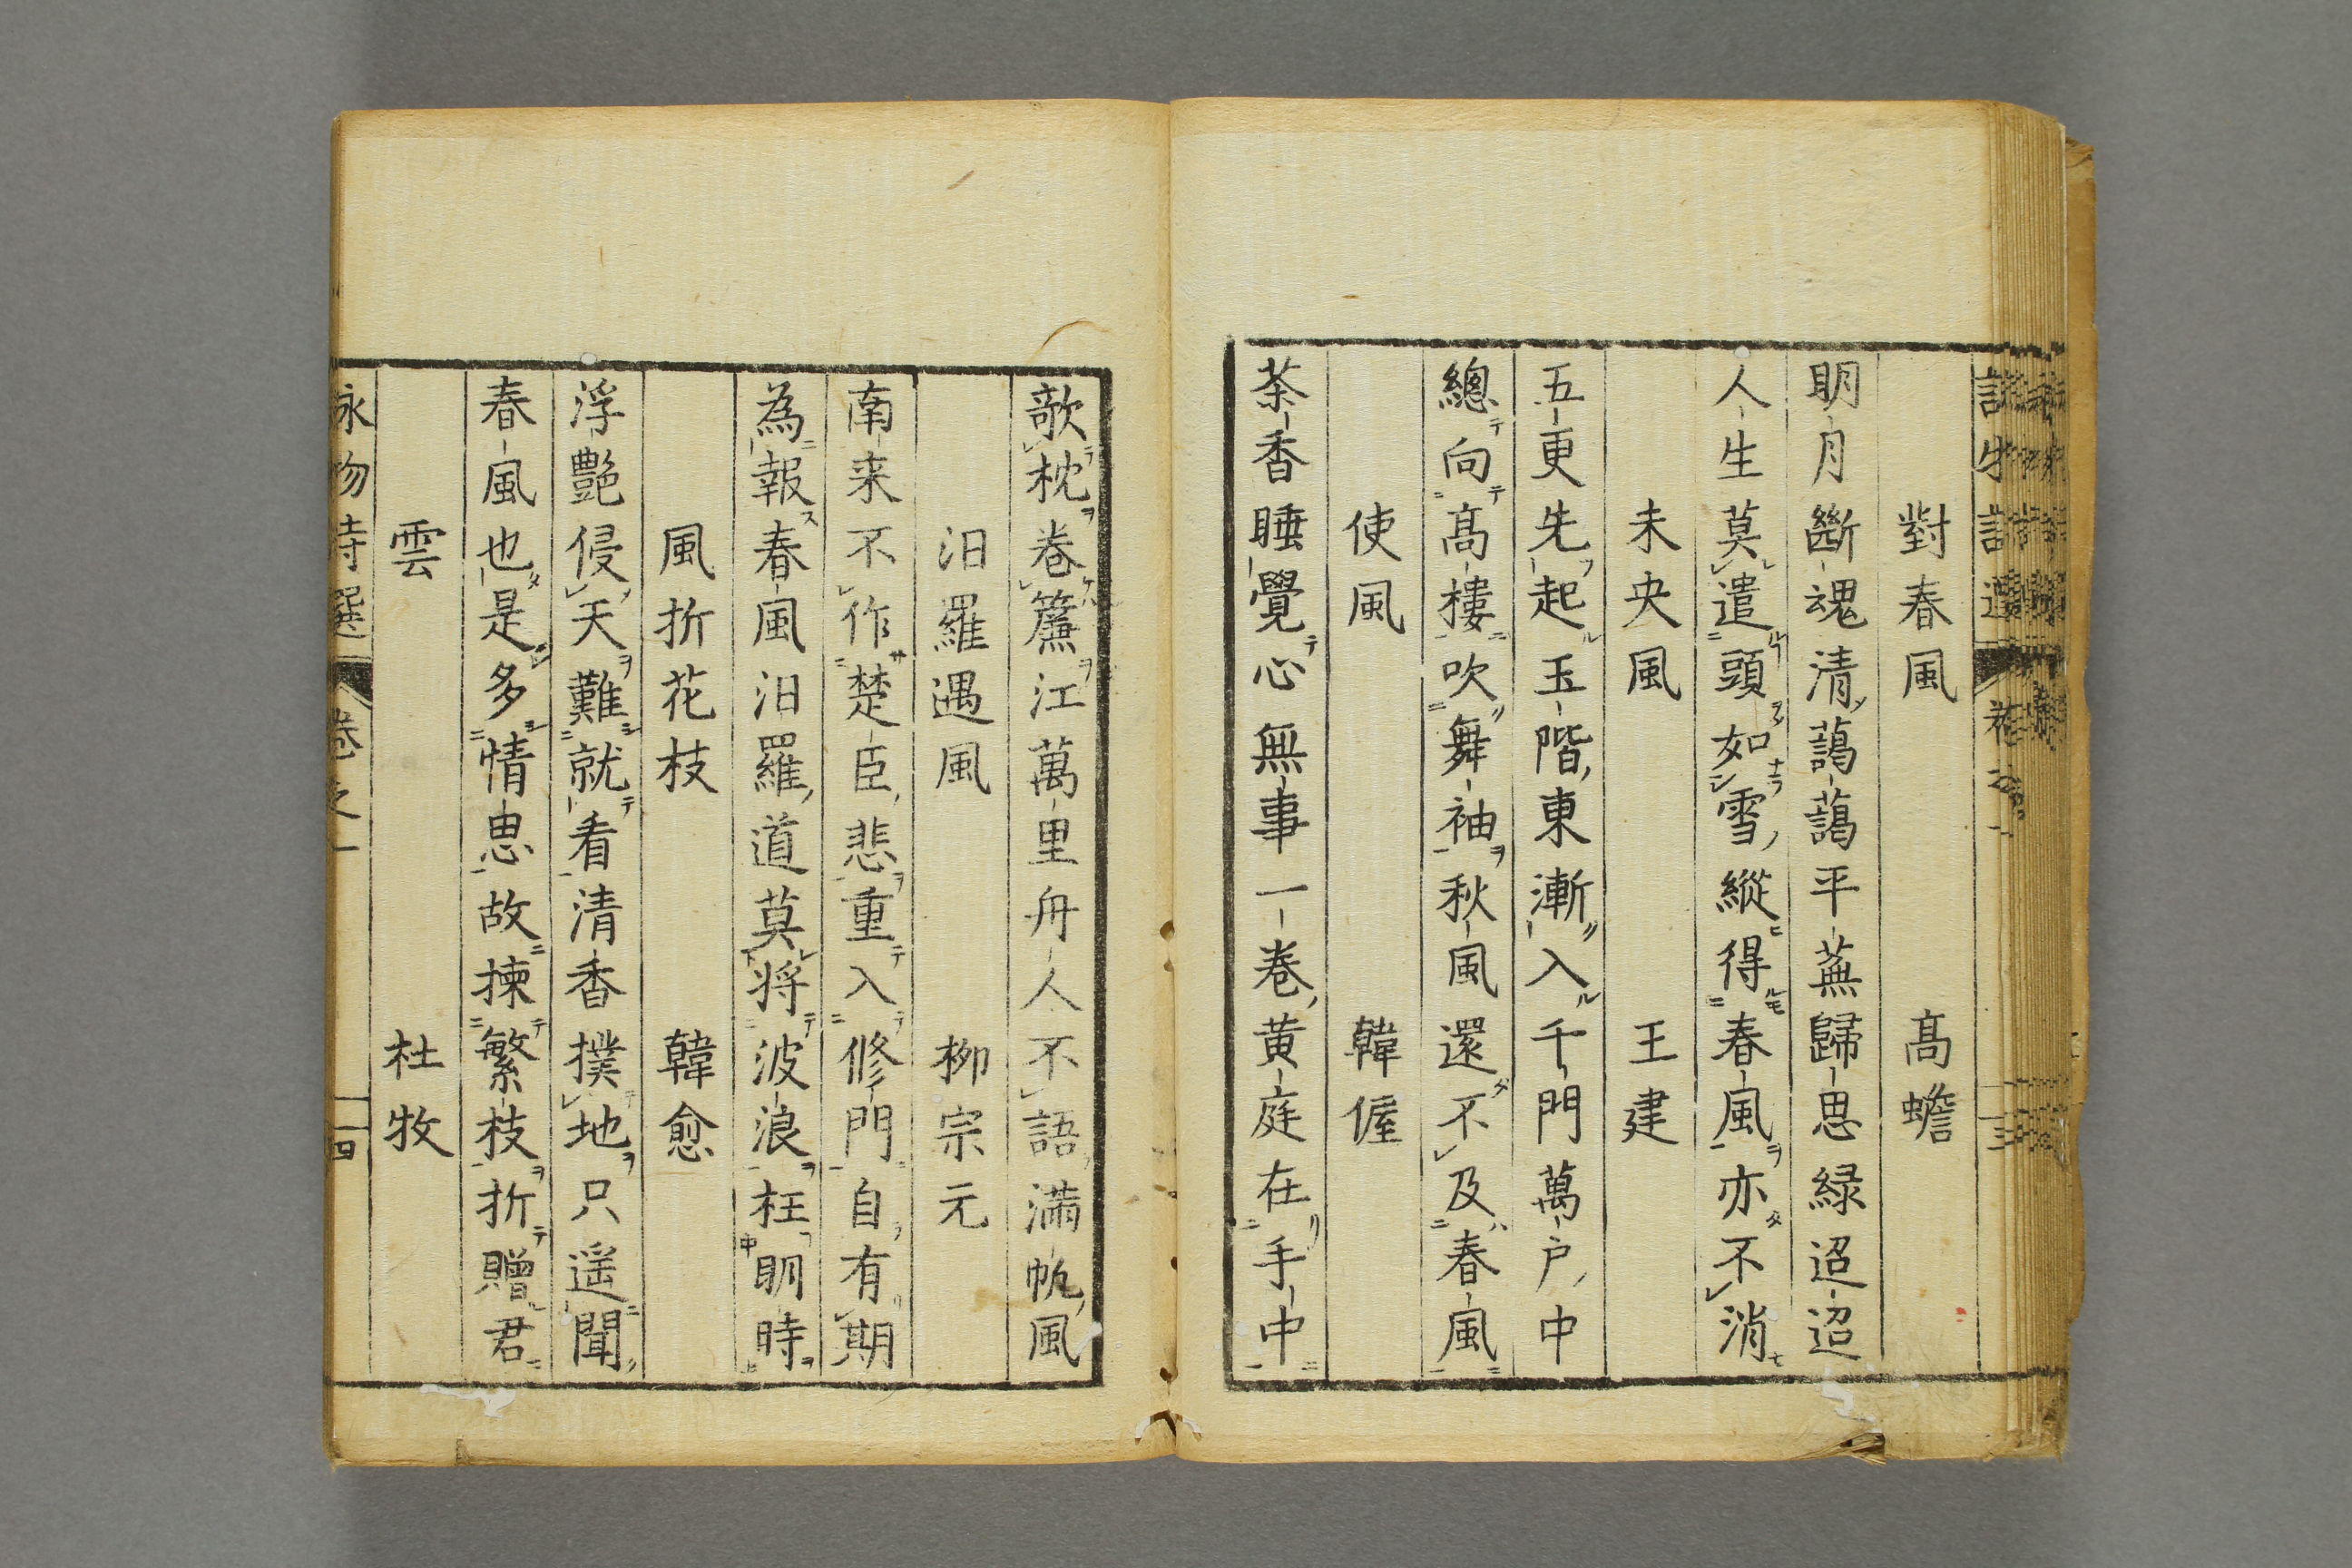 對春風 高蟾
明月斷魂清藹藹平蕪歸思緑迢迢
人生莫遣頭如雪縱得春風亦不消
未央風 王建
五更先起玉階東漸入千門萬户中
總向高樓吹舞袖秋風還不及春風
使風 韓偓
茶香睡覺心無事一卷黄庭在手中
欹枕卷簾江萬里舟人不語滿帆風
汨羅遇風 柳宗元
南来不作楚臣悲重入修門自有期
為報春風汨羅道莫将波浪枉明時
風折花枝 韓愈
浮艷侵天難就看清香撲地只遥聞
春風也是多情思故揀繁枝折贈君
雲 杜牧
詠物詩選 卷之一 四